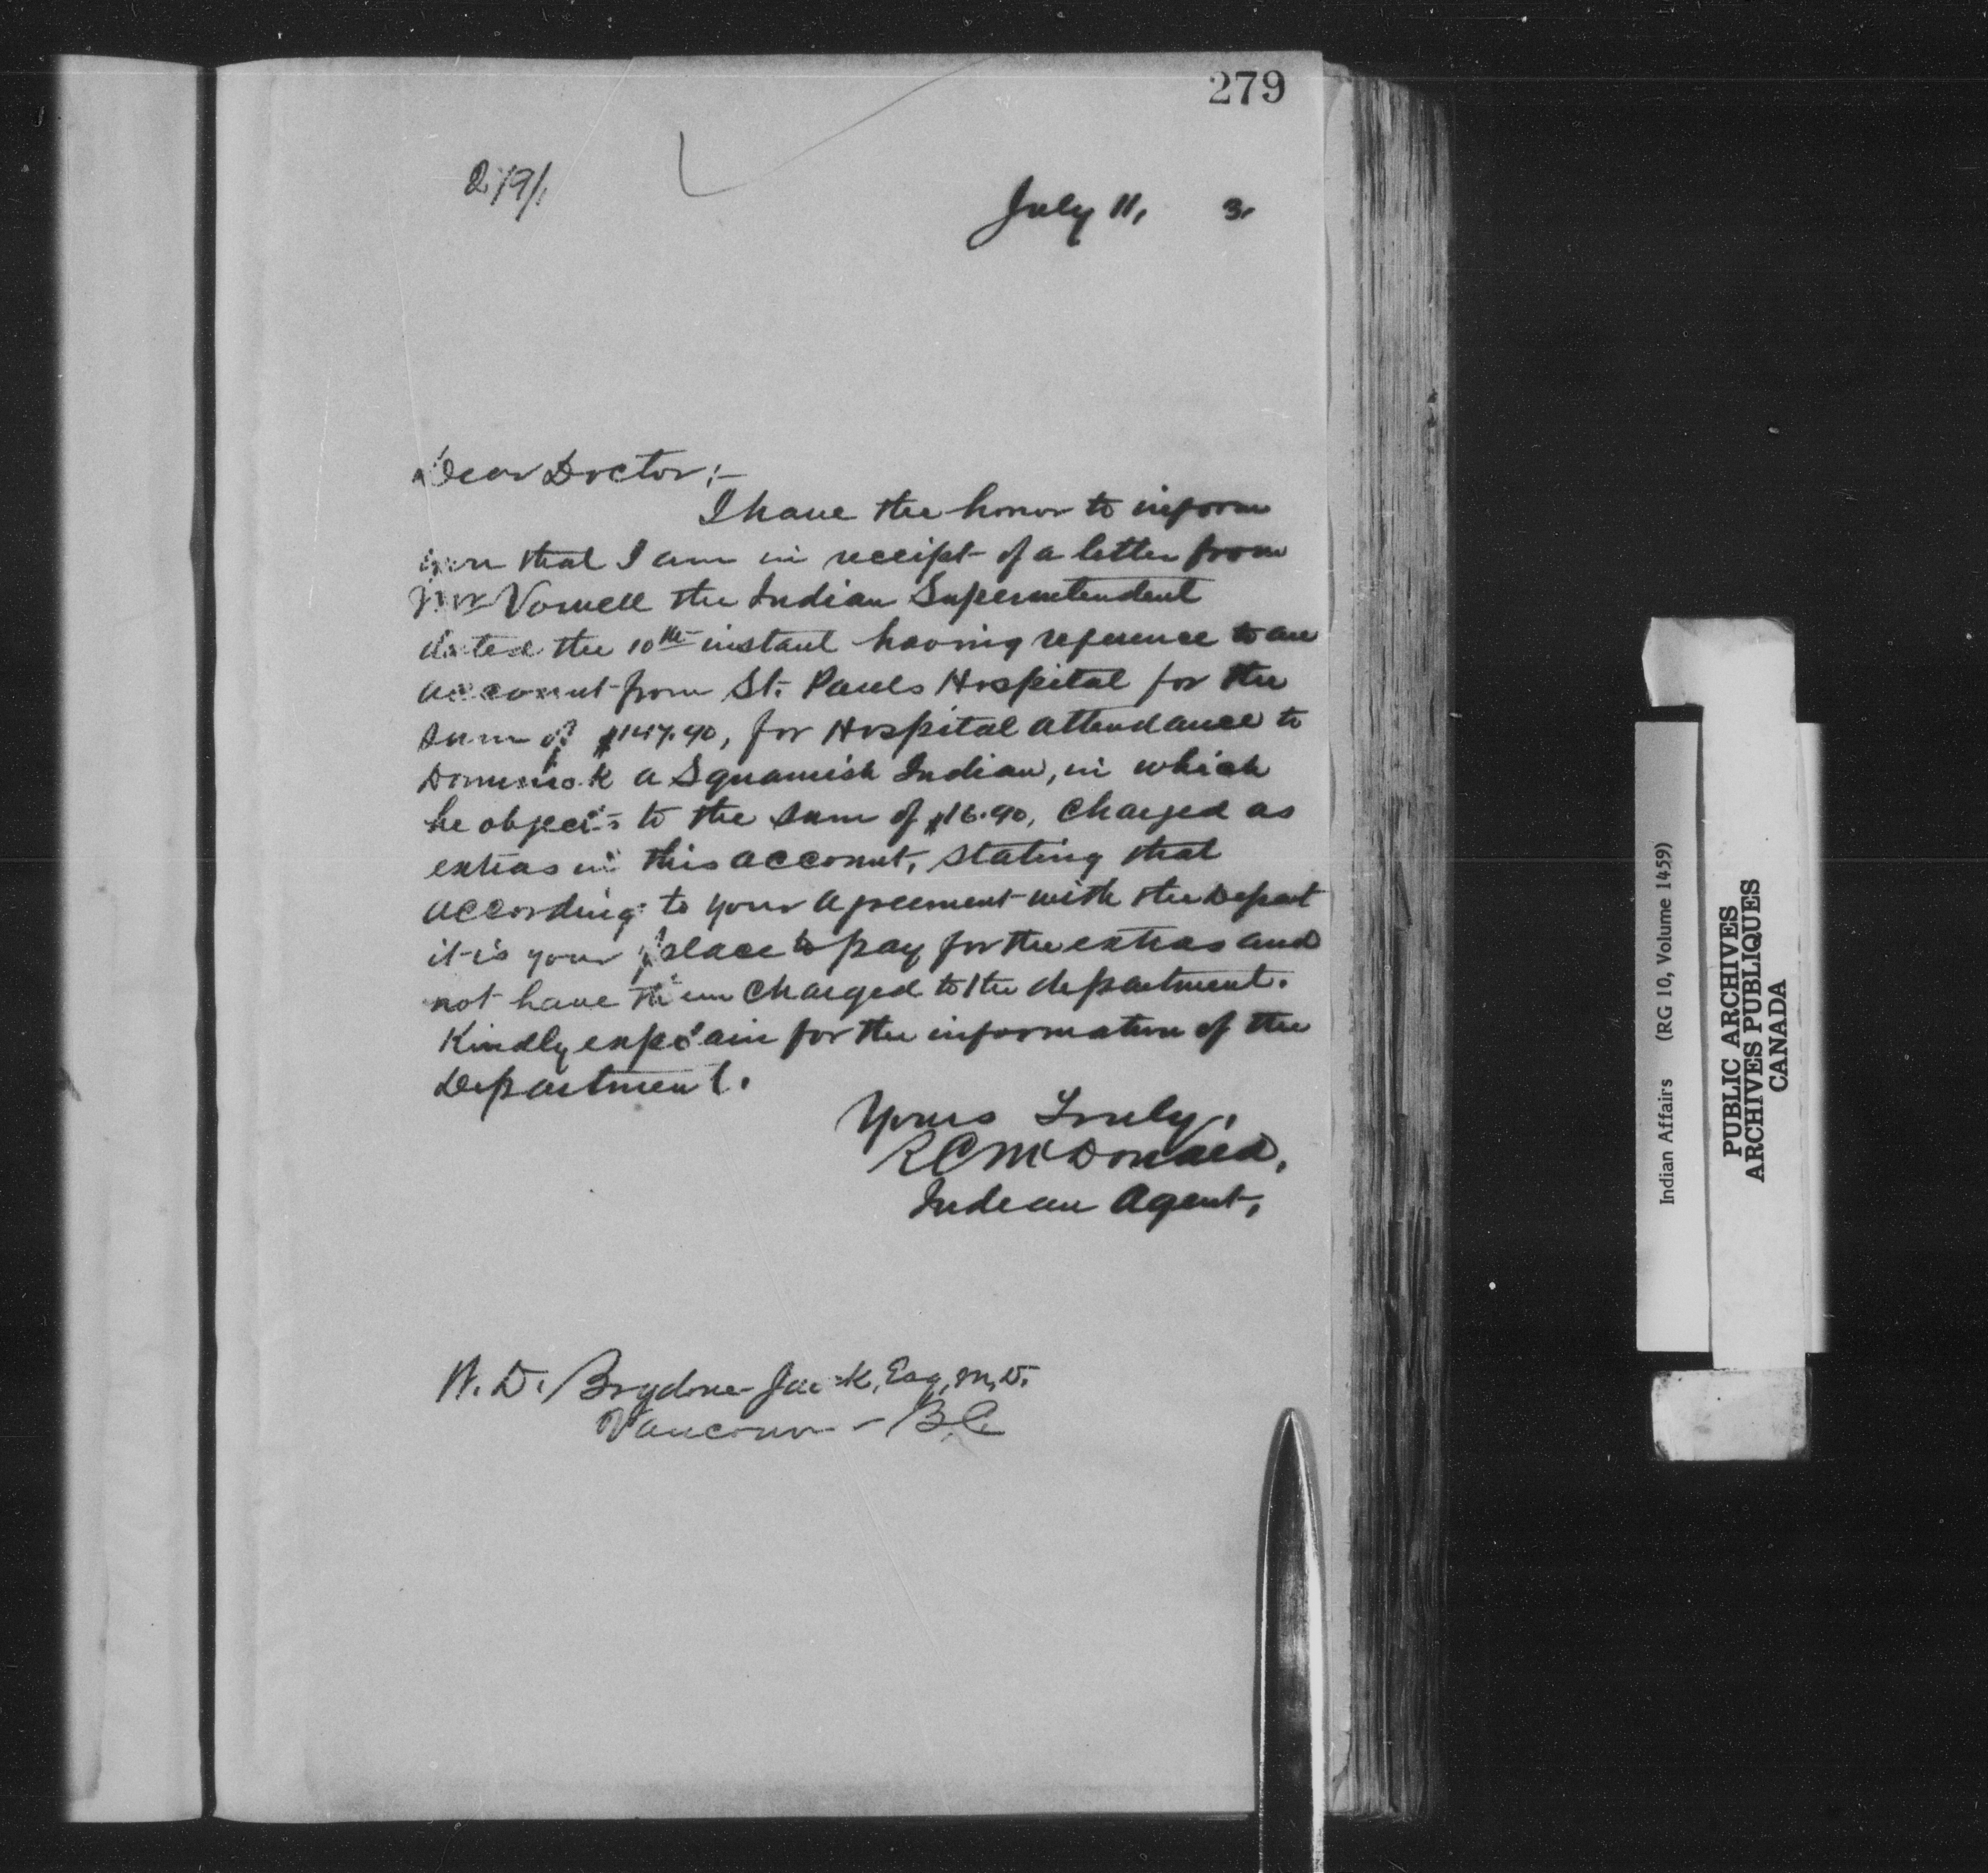 279
July 11, 3.
Dear Doctor:-
I have the honor to inform
you that I am in receipt of a letter from
Mr Vowell the Indian Superintendent
dated the 10th instant having reference to an
account from St. Pauls Hospital for the
sum of $147.90, for Hospital attendance to
Dominick a Squamish Indian, in which
he objects to the sum of $16.90, charged as
extras in this account, stating that
according to your agreement with the Depart
it is your place to pay for the extras and
not have them charged to the department.
Kindly explain for the information of the
Department.
Yours Truly,
R C McDonald,
Indian Agent,
W. D. Brydone-Jack, Esq, M.D.
Vancouver - B.C.
Indian Affairs (RG 10, Volume 1459)
PUBLIC ARCHIVES
ARCHIVES PUBLIQUES
CANADA